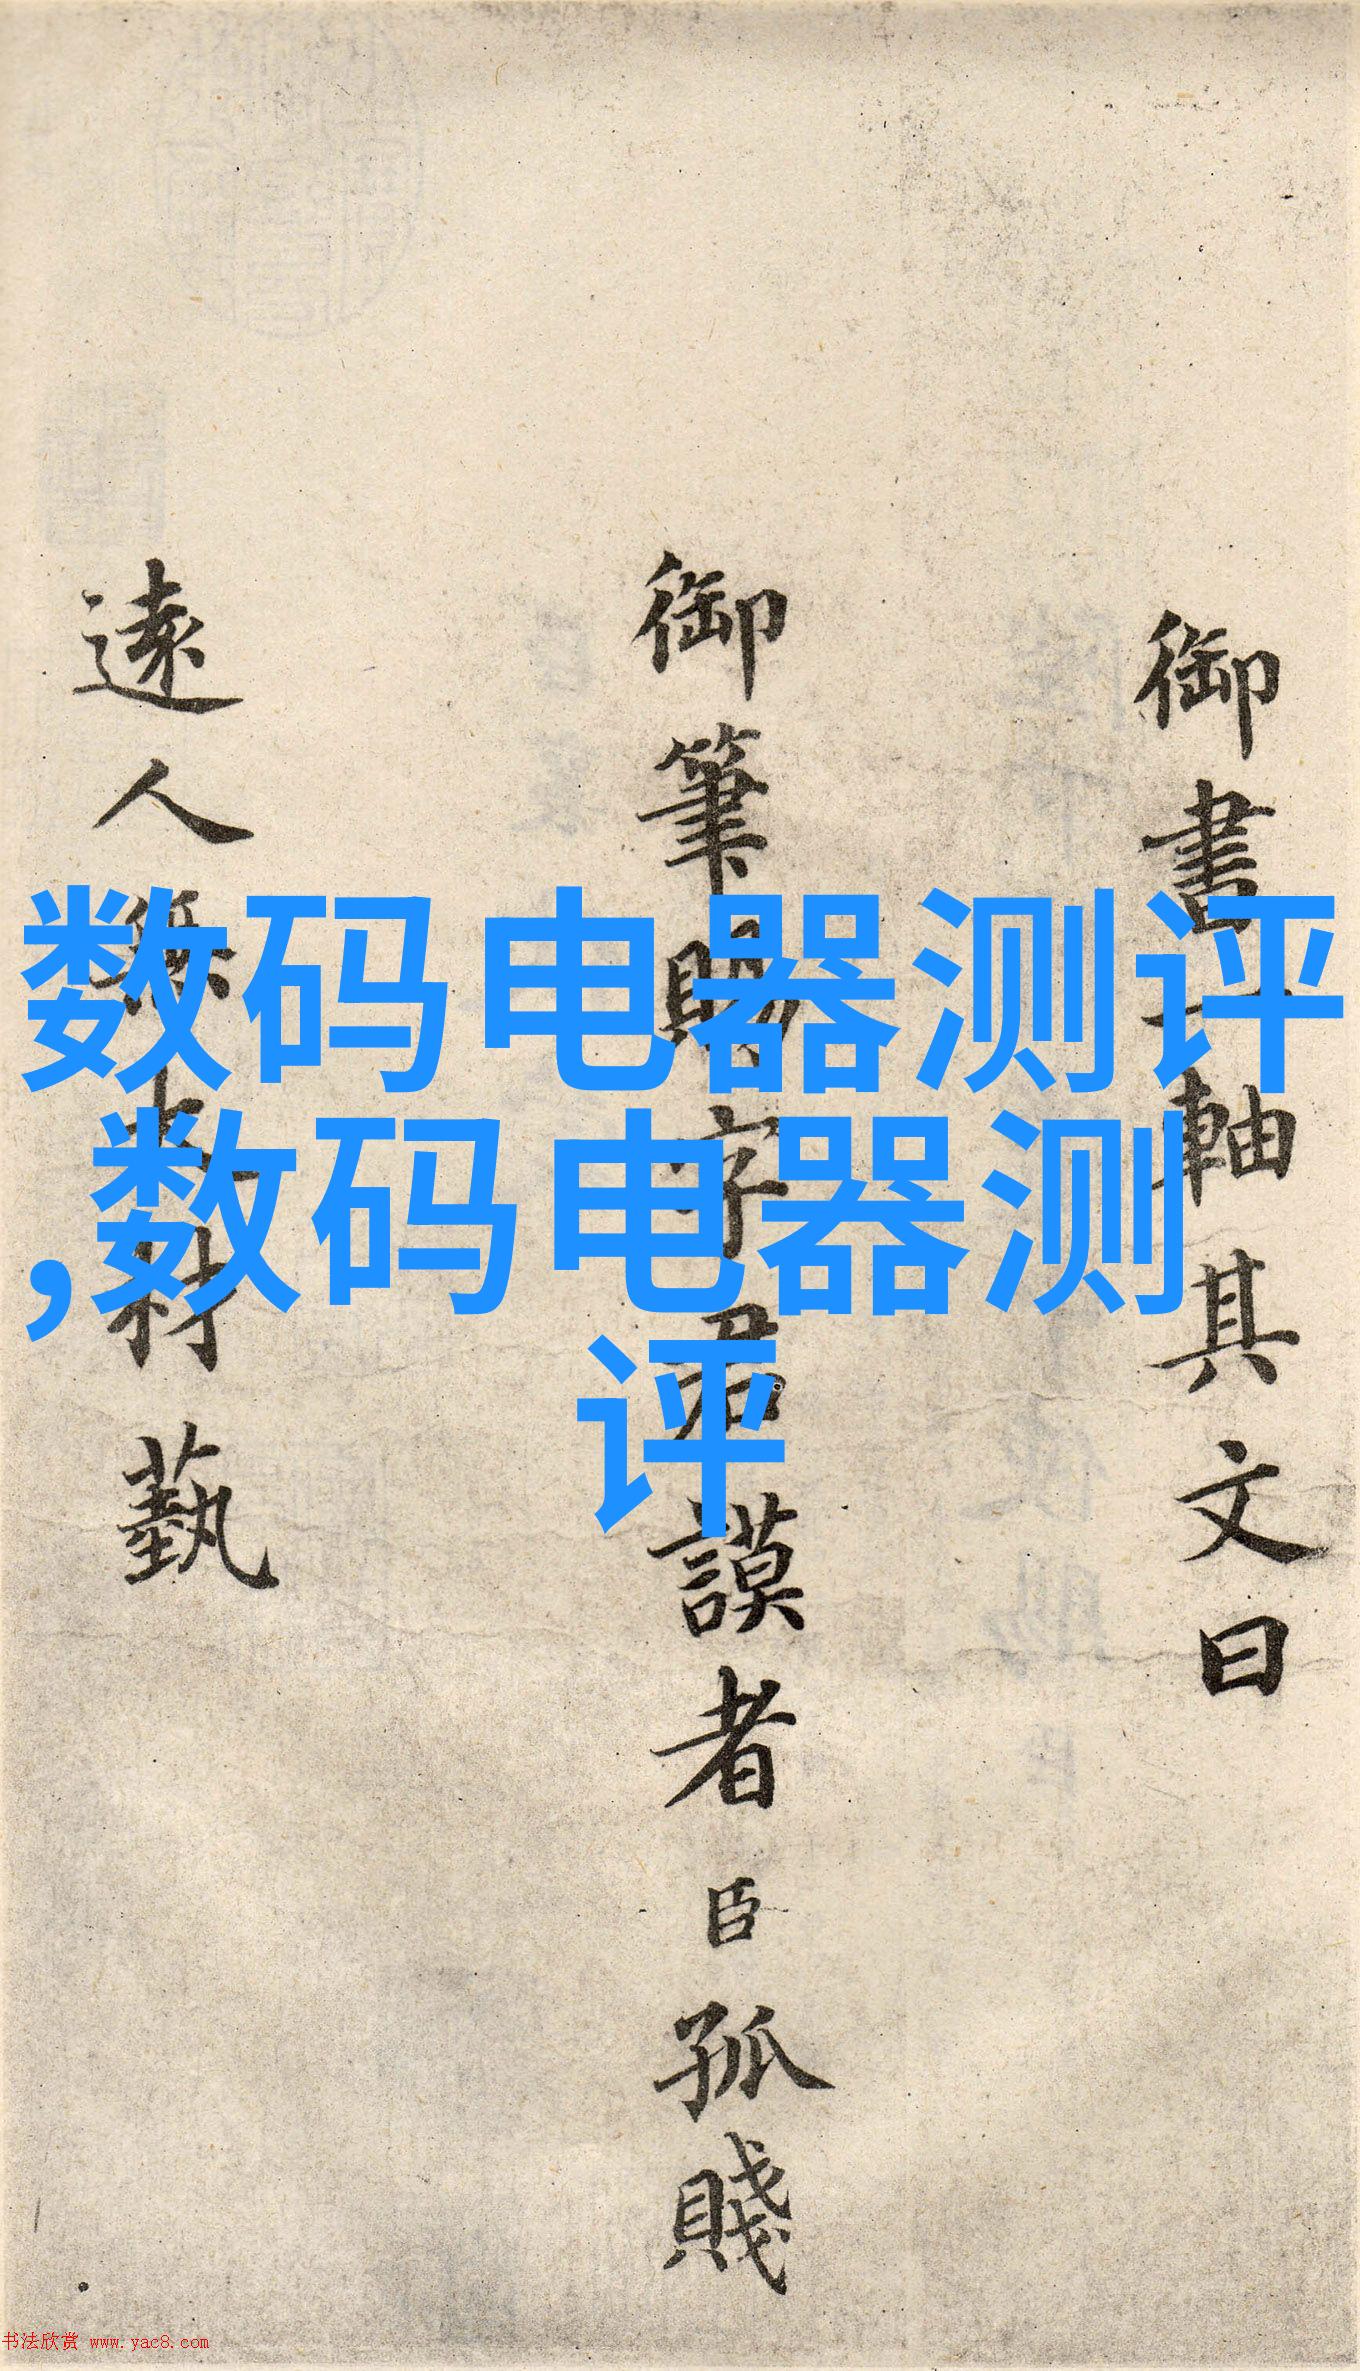 御書一軸其文曰
御筆賜字君謨者臣孤賤
遠人無大材藝
数码电器测评
,数码电器测
评
书法欣赏 www.yac8.com